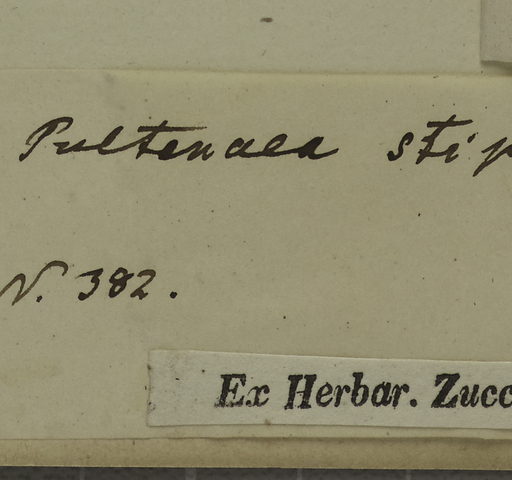 Pultenaea stip
N. 382.
Ex Herbar. Zucc